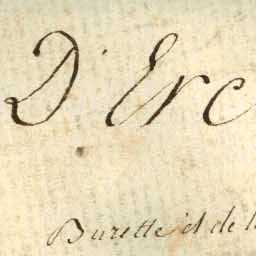 D'Erc
Burette et de l